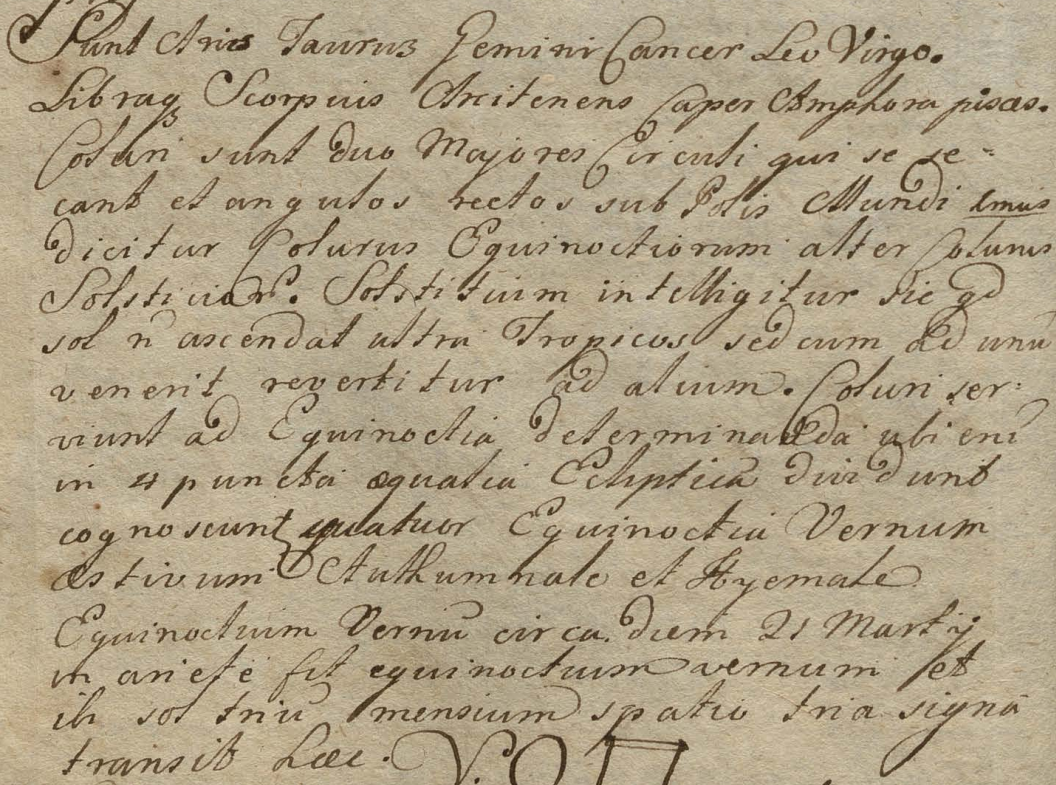 Sunt Aries Taurus Gemini Cancer Leo Virgo.
Libraq; Scorpius Arcitenens Caper Amphora pisces.
Coluri sunt duo Majores Circuli qui se se=
cant et angulos rectos sub Polis Mundi
dicitur Colurus Equinoctiorum alter Colurus
Solstitium intelligitur sic qd
sol n̄ ascendat ultra Tropicos sed cum ad unū
venerit revertitur ad alium. Coluri ser:
viunt ad Equinoctia determinanda ubi enī
in 4 puncta æqualia Eclipticā dividunt
cognoscunt quatuor Equinoctia Vernum
æstivum Authumnale et Hyemale
Equinoctium Vernū circa diem 21 Martij
in ariete fit equinoctium vernum et
ibi sol triū mensium spatio tria signa
transit hæc. V.